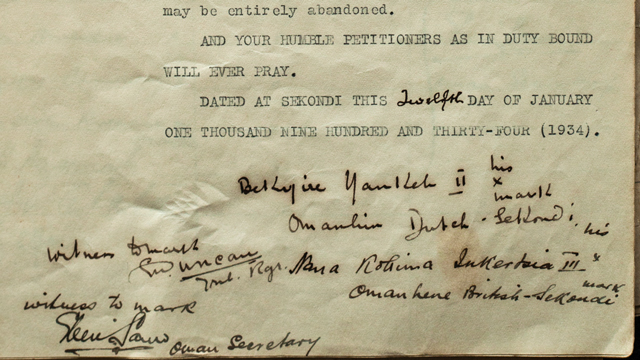 may be entirely abandoned.
AND YOUR HUMBLE PETITIONERS AS IN DUTY BOUND
WILL EVER PRAY.
DATED AT SEKONDI THIS Twelfth DAY OF JANUARY
ONE THOUSAND NINE HUNDRED AND THIRTY-FOUR (1934).
his
Yankeh II x
mark
Omanhin Dutch-Sekondi, his
witness to mark
Duncan
Nana Kobina Inkertsia III x
mark
Omanhene British-Sekondi
witness to mark
Oman Secretary